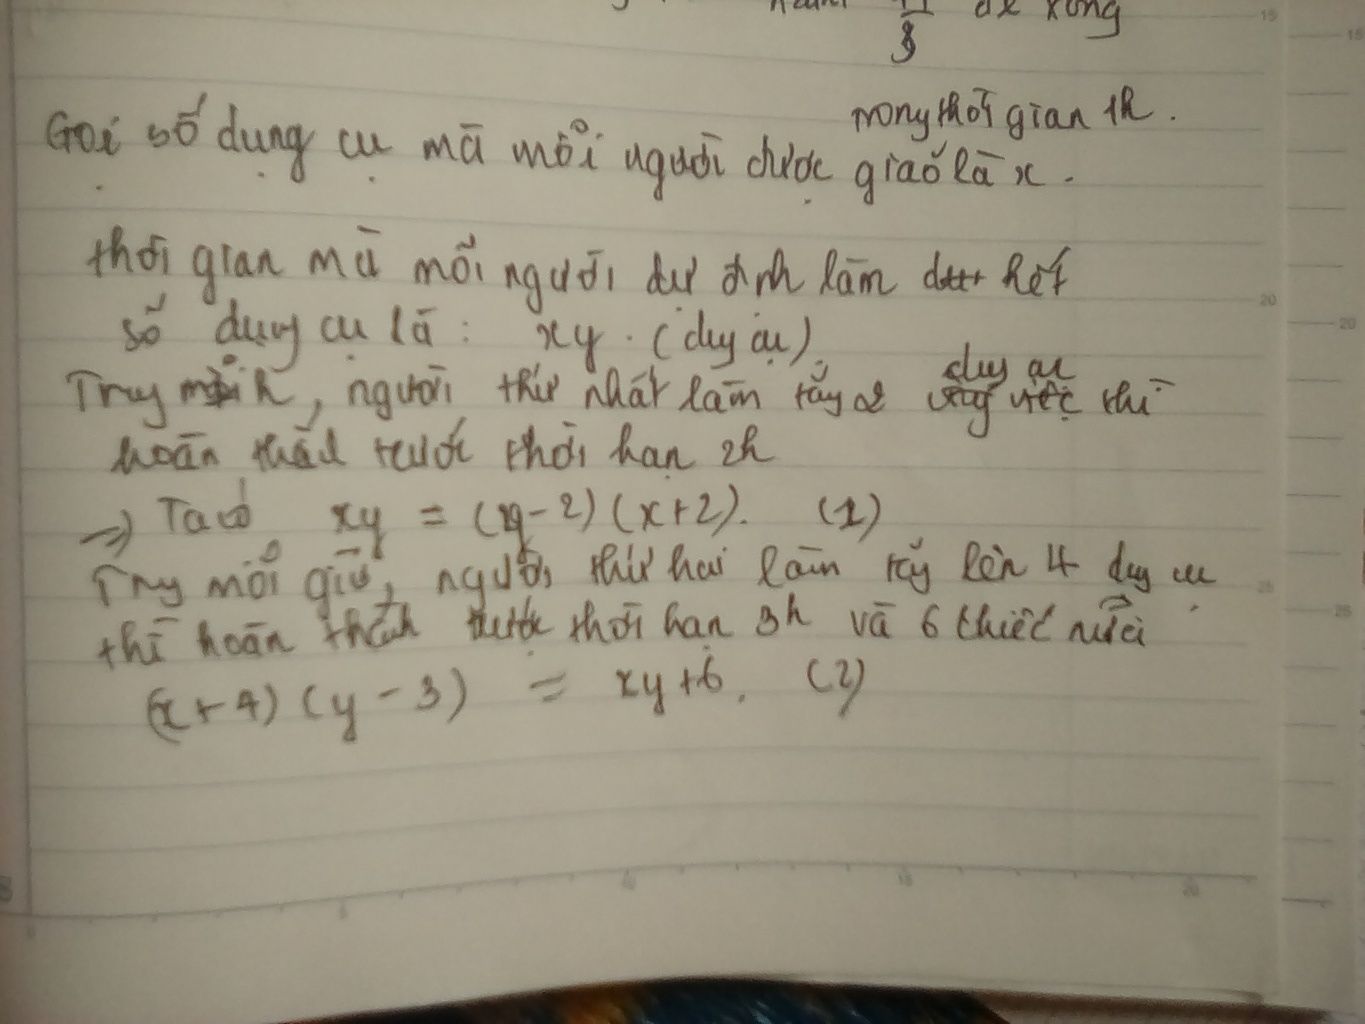 3 để xong
trong thời gian 1h.
Gọi số dụng cụ mà mỗi người được giao là x.
thời gian mà mỗi người dự định làm hết
số dụng cụ là: xy. (dụng cụ).
dụng cụ
Trong mỗi h, người thứ nhất làm tăng 2 công việc thì
hoàn thành trước thời hạn 2h
=> Ta có xy = (y-2)(x+2). (1)
Trong mỗi giờ, người thứ hai làm tăng lên 4 dụng cụ
thì hoàn thành trước thời hạn 3h và 6 chiếc nữa
(x+4)(y-3) = xy+6. (2)